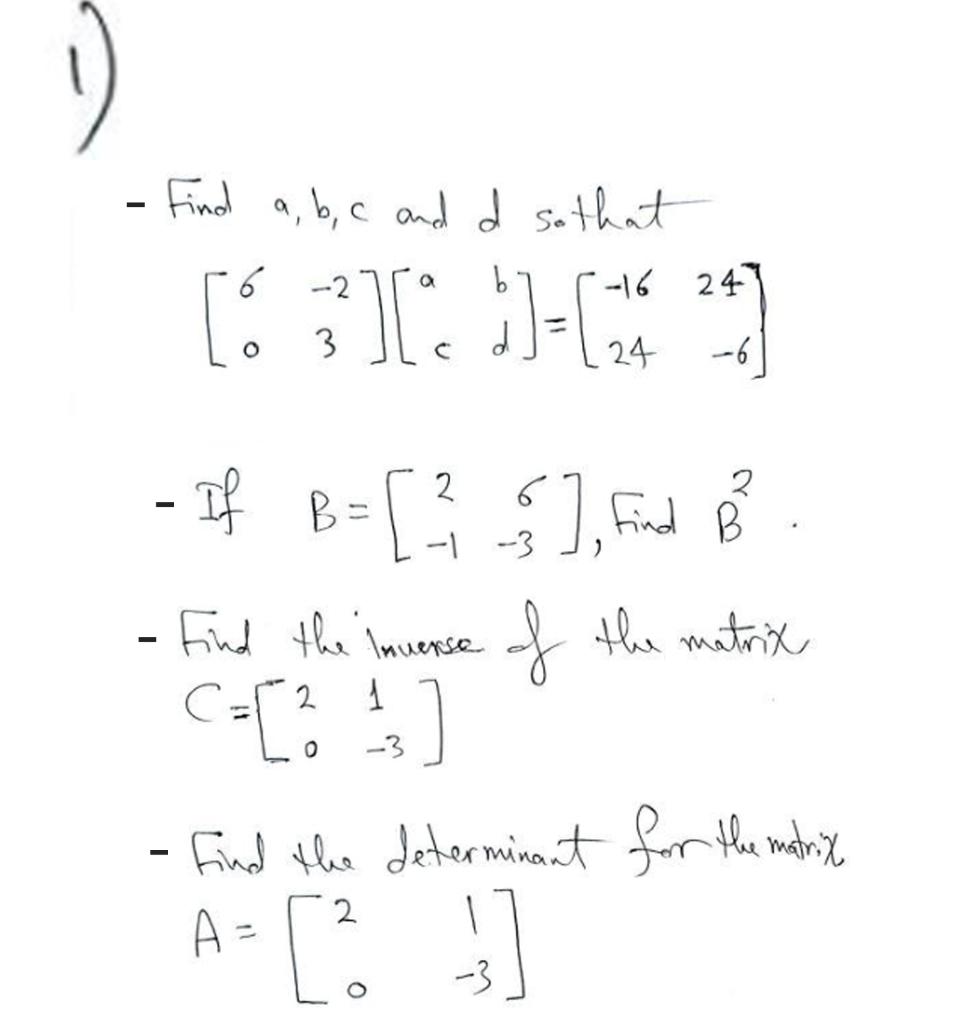 1)
- Find a, b, c and d so that
[ 6 -2 ] [ a b ] = [ -16 24 ]
[ 0 3 ] [ c d ] [ 24 -6 ]
- If B = [ 2 6 ], Find B².
[ -1 -3 ]
- Find the inverse of the matrix
C = [ 2 1 ]
[ 0 -3 ]
- Find the determinant for the matrix
A = [ 2 1 ]
[ 0 -3 ]